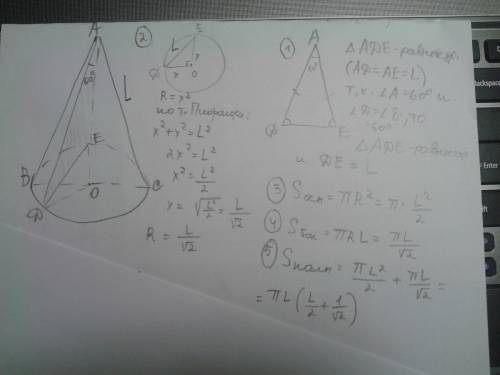 A
60°
L
E
B
O
C
D
②
E
L
x
D
x
O
R = x²
по т. Пифагора:
x² + x² = L²
2x² = L²
x² = L²/2
x = √(L²/2) = L/√2
R = L/√2
①
A
60°
D
E
△ADE - равнобедр.
(AD = AE = L)
т.к. ∠A = 60° и
∠D = ∠E, то
= 60°
△ADE - равностор
и DE = L
③ Sосн = πR² = π · L²/2
④ Sбок = πRL = πL/√2
⑤ Sполн = πL²/2 + πL/√2 =
= πL (L/2 + 1/√2)
backspace